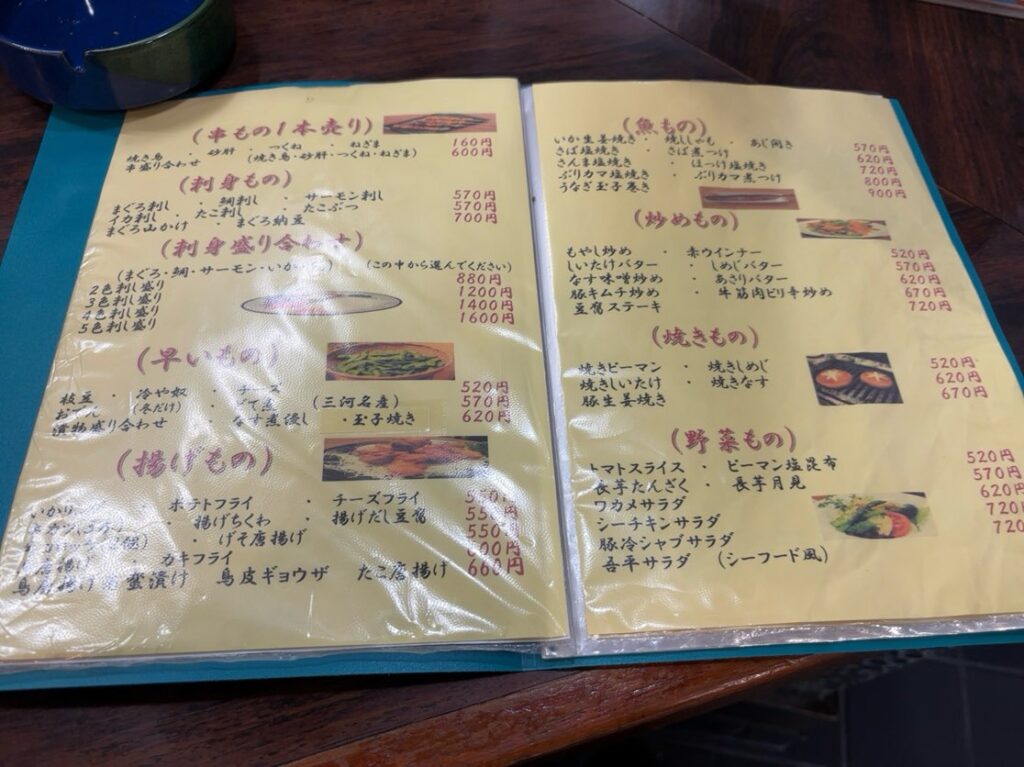 (串もの1本売り)
焼き鳥 ・ 砂肝 ・ つくね ・ ねぎま 160円
串盛り合わせ (焼き鳥・砂肝・つくね・ねぎま) 600円
(刺身もの)
まぐろ刺し ・ 鯛刺し ・ サーモン刺し 570円
イカ刺し ・ たこ刺し ・ たこぶつ 570円
まぐろ山かけ ・ まぐろ納豆 700円
(刺身盛り合わせ)
(まぐろ・鯛・サーモン・いか・ (この中から選んでください)
2色刺し盛り 880円
3色刺し盛り 1200円
4色刺し盛り 1400円
5色刺し盛り 1600円
(早いもの)
枝豆 ・ 冷や奴 ・ チーズ 520円
おでん (冬だけ) ・ どて煮 (三河名産) 570円
漬物盛り合わせ ・ なす煮浸し ・ 玉子焼き 620円
(揚げもの)
ポテトフライ ・ チーズフライ
・ 揚げちくわ ・ 揚げだし豆腐 550円
・ げそ唐揚げ 550円
・ カキフライ 600円
鳥皮ギョウザ たこ唐揚げ 660円
(魚もの)
いか生姜焼き ・ 焼ししゃも ・ あじ開き 570円
さば塩焼き ・ さば煮つけ 620円
さんま塩焼き ・ ほっけ塩焼き 720円
ぶりカマ塩焼き ・ ぶりカマ煮つけ 800円
うなぎ玉子巻き 900円
(炒めもの)
もやし炒め ・ 赤ウインナー 520円
しいたけバター ・ しめじバター 570円
なす味噌炒め ・ あさりバター 620円
豚キムチ炒め ・ 牛筋肉ピリ辛炒め 670円
豆腐ステーキ 720円
(焼きもの)
焼きピーマン ・ 焼きしめじ 520円
焼きしいたけ ・ 焼きなす 620円
豚生姜焼き 670円
(野菜もの)
トマトスライス ・ ピーマン塩昆布 520円
長芋たんざく ・ 長芋月見 570円
ワカメサラダ 620円
シーチキンサラダ 720円
豚冷シャブサラダ 720
吾平サラダ (シーフード風)